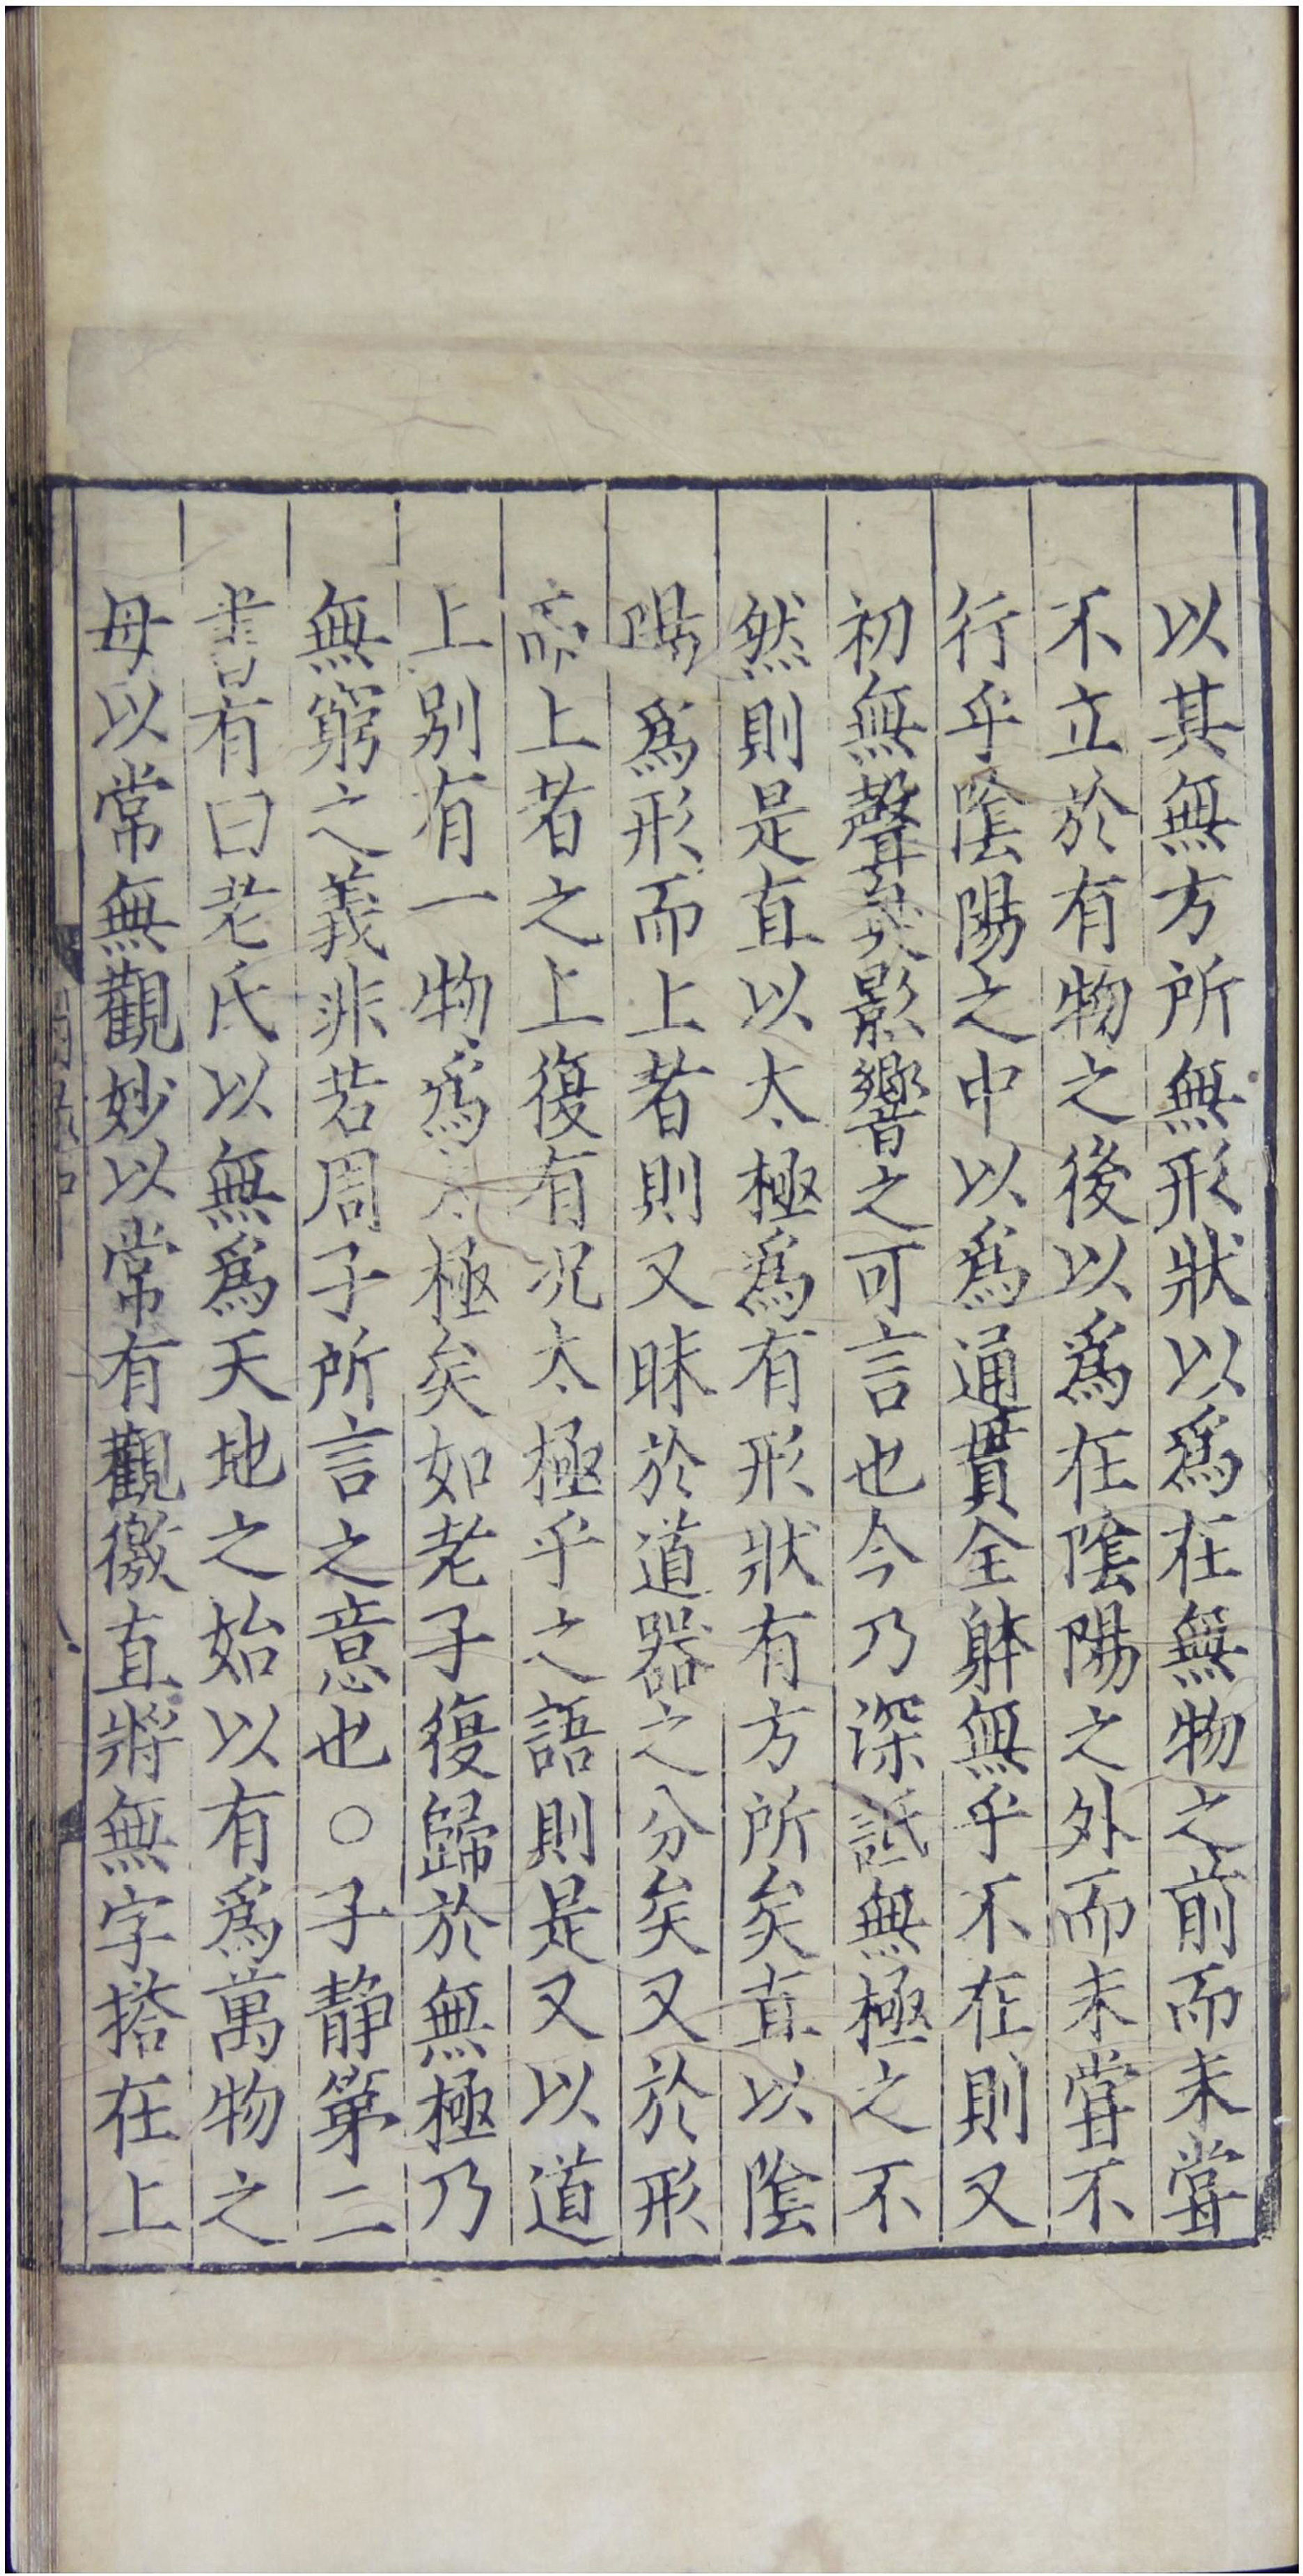 以其無方所無形狀以爲在無物之前而未甞
不立於有物之後以爲在隂陽之外而未甞不
行乎隂陽之中以爲通貫全躰無乎不在則又
初無聲臭影響之可言也今乃深詆無極之不
然則是直以太極爲有形狀有方所矣直以隂
陽爲形而上者則又昧於道器之分矣又於形
而上者之上復有况太極乎之語則是又以道
上别有一物爲太極矣如老子復歸於無極乃
無窮之義非若周子所言之意也○子静第二
書有曰老氏以無爲天地之始以有爲萬物之
母以常無觀妙以常有觀徼直將無字搭在上